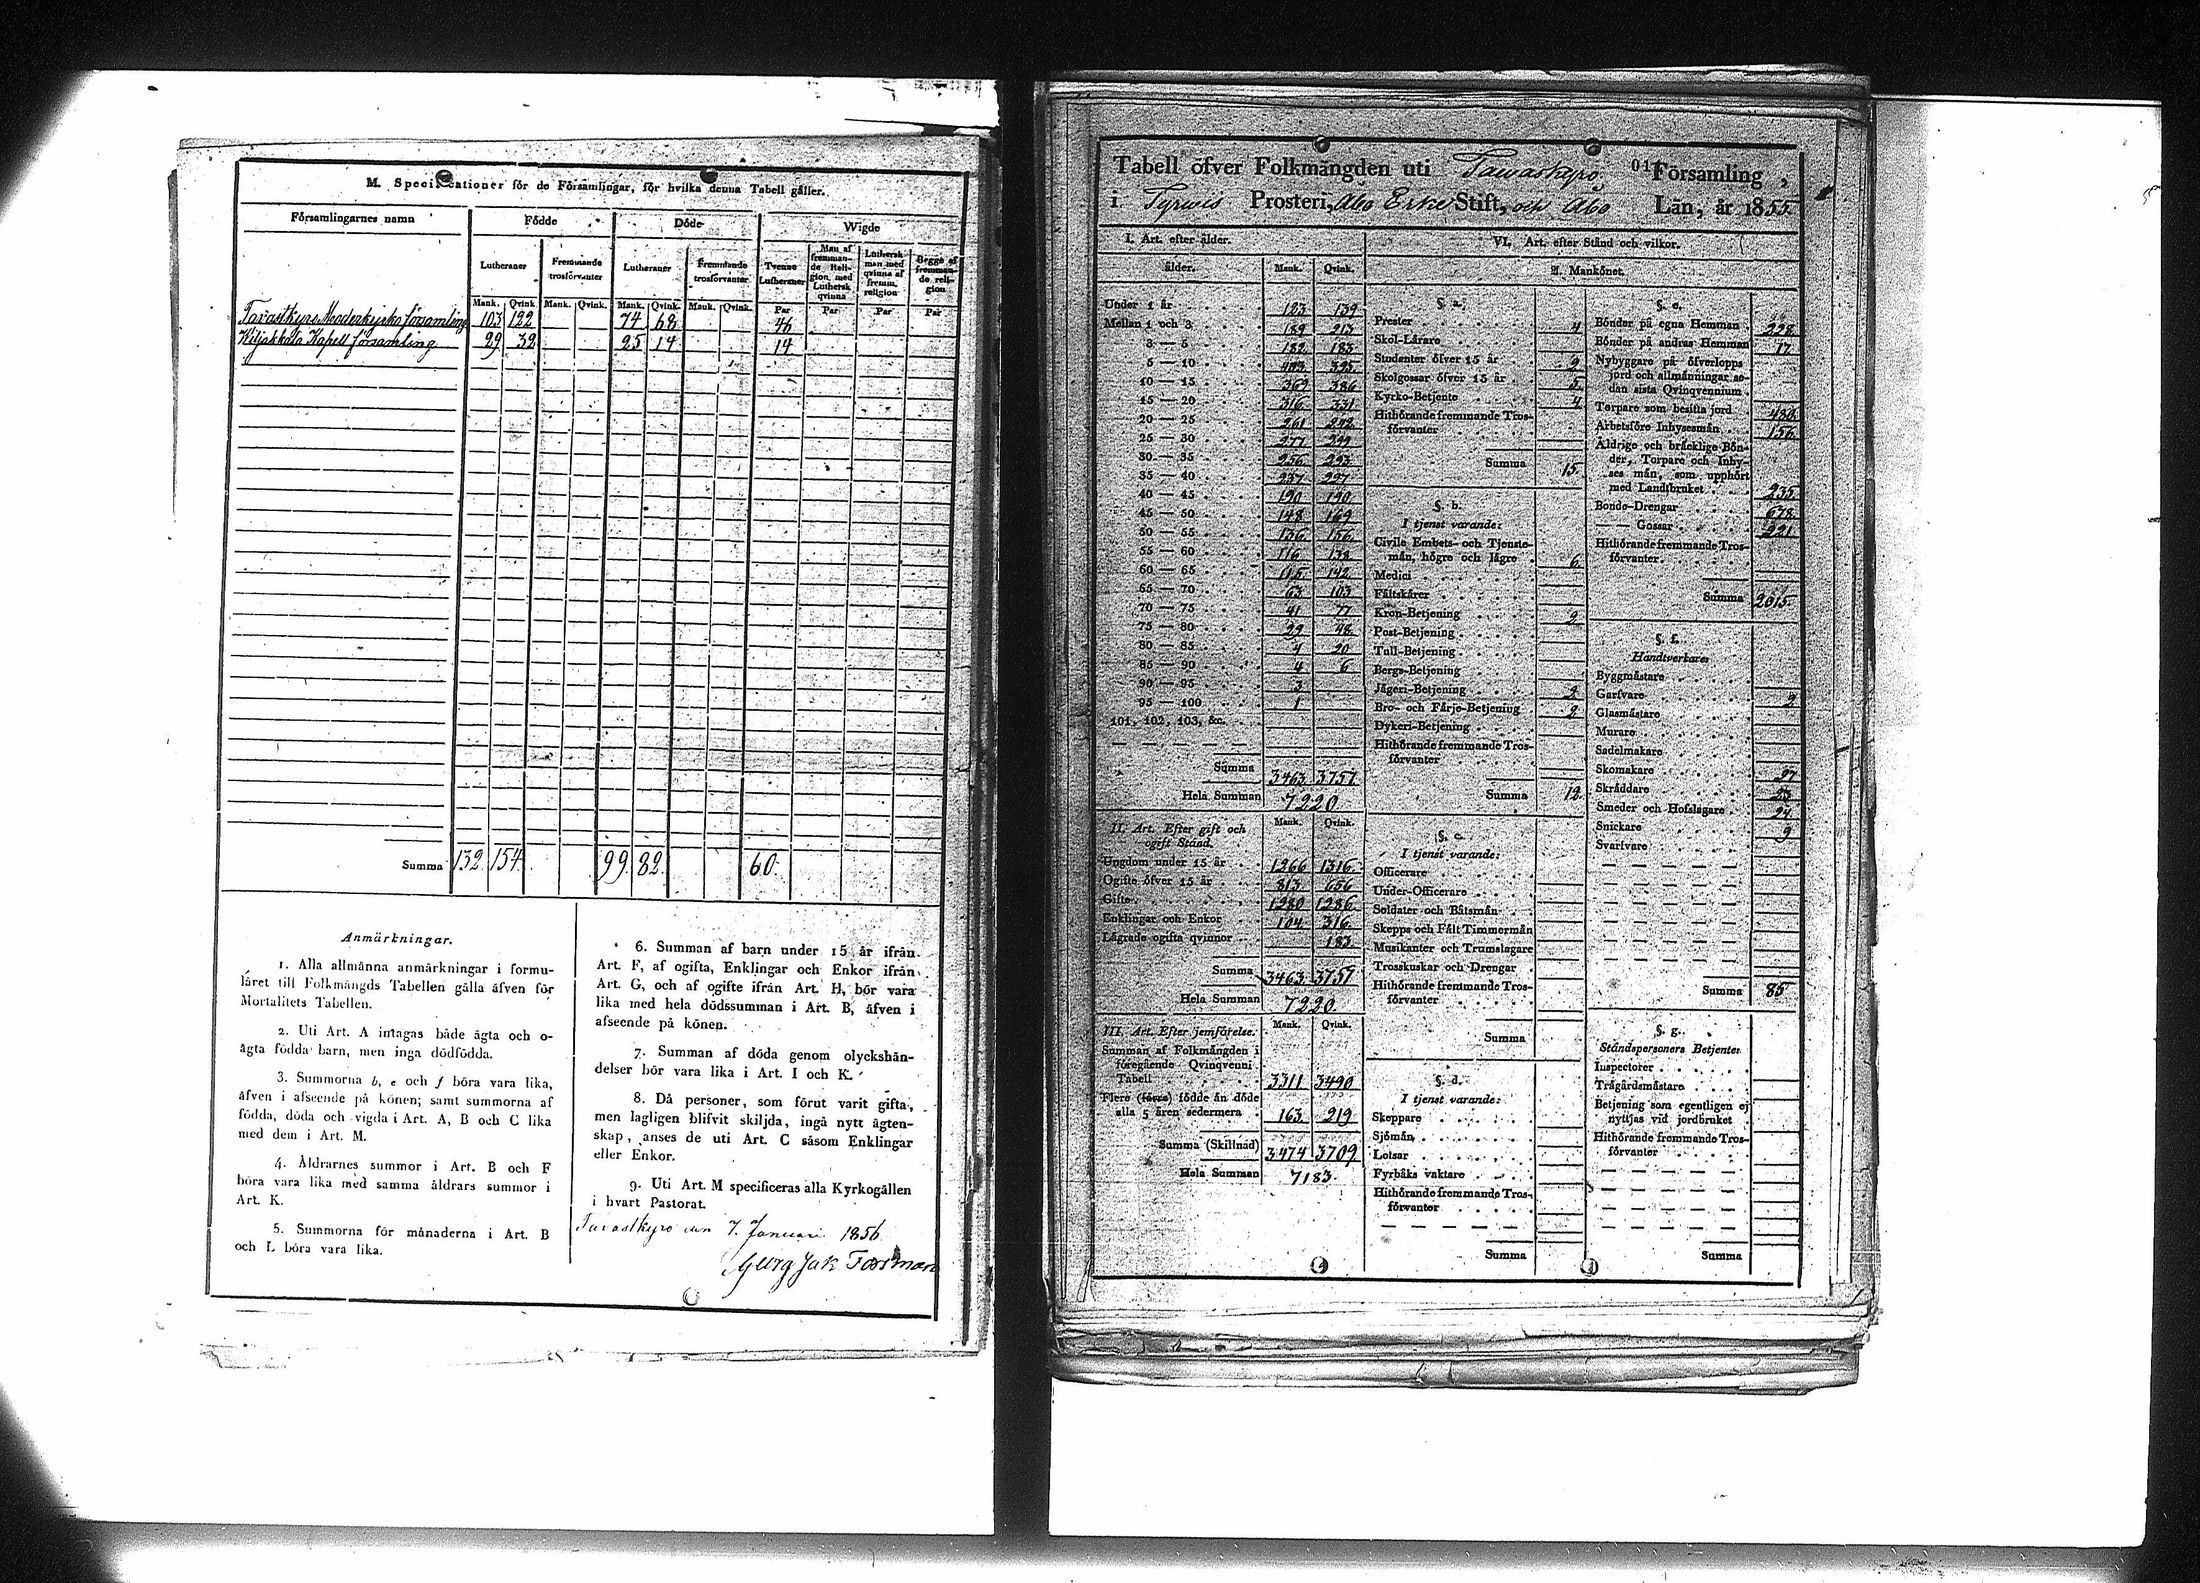 M. Specificationer för de Församlingar, för hvilka denna Tabell gäller.
Församlingarnes namn Födde Döde Wigde
Lutheraner Fremmande trosförvanter Lutheraner Fremmande trosförvanter Tvenne Lutheraner Man af fremmande Religion med Luthersk qvinna Luthersk man med qvinna af fremm. religion Begge af fremmande religion
Mank. Qvink. Mank. Qvink. Mank. Qvink. Mank. Qvink. Par Par Par Par
Tavastkyro Moderkyrko församling 103 122 74 68 46
Wiljakkala Kapell församling 29 32 25 14 14
Summa 132 154 99 82 60
Anmärkningar.
1. Alla allmänna anmärkningar i formu-
läret till Folkmängds Tabellen gälla äfven för
Mortalitets Tabellen.
2. Uti Art. A intagas både ägta och o-
ägta födda barn, men inga dödfödda.
3. Summorna b, e och f böra vara lika,
äfven i afseende på könen; samt summorna af
födda, döda och vigda i Art. A, B och C lika
med dem i Art. M.
4. Åldrarnes summor i Art. B och F
böra vara lika med samma åldrars summor i
Art. K.
5. Summorna för månaderna i Art. B
och L böra vara lika.
6. Summan af barn under 15 år ifrån
Art. F, af ogifta, Enklingar och Enkor ifrån
Art. G, och af ogifte ifrån Art. H, bör vara
lika med hela dödssumman i Art. B, äfven i
afseende på könen.
7. Summan af döda genom olyckshän-
delser bör vara lika i Art. I och K.
8. Då personer, som förut varit gifta,
men lagligen blifvit skiljda, ingå nytt ägten-
skap, anses de uti Art. C såsom Enklingar
eller Enkor.
9. Uti Art. M specificeras alla Kyrkogällen
i hvart Pastorat.
Tavastkyro den 7. Januari 1856.
Georg Jak Forsman
Tabell öfver Folkmängden uti Tavastkyro Församling,
i Tyrwis Prosteri, Åbo Erke Stift, och Åbo Län, år 1855.
I. Art. efter ålder.
ålder. Mank. Qvink.
Under 1 år 123 139
Mellan 1 och 3 189 213
3 — 5 182 183
5 — 10 403 395
10 — 15 369 386
15 — 20 316 331
20 — 25 261 242
25 — 30 277 299
30 — 35 256 293
35 — 40 237 297
40 — 45 190 190
45 — 50 148 169
50 — 55 136 156
55 — 60 116 138
60 — 65 115 142
65 — 70 63 103
70 — 75 41 77
75 — 80 29 48
80 — 85 4 20
85 — 90 4 6
90 — 95 3
95 — 100 1
101, 102, 103, &c.
Summa 3463 3757
Hela Summan 7220
II. Art. Efter gift och
ogift Stånd. Mank. Qvink.
Ungdom under 15 år 1266 1316
Ogifte öfver 15 år 813 656
Gifte 1280 1286
Enklingar och Enkor 104 316
Lägrade ogifta qvinnor 183
Summa 3463 3757
Hela Summan 7220
III. Art. Efter jemförelse. Mank. Qvink.
Summan af Folkmängden i
föregående Qvinqvenni
Tabell 3311 3490
Flere (färre) födde än döde
alla 5 åren sedermera 163 219
Summa (Skillnad) 3474 3709
Hela Summan 7183
VI. Art. efter Stånd och vilkor.
Mankönet.
§. a.
Prester 4
Skol-Lärare
Studenter öfver 15 år 2
Skolgossar öfver 15 år 5
Kyrko-Betjente 4
Hithörande fremmande Tros-
förvanter
Summa 15
§. b.
I tjenst varande:
Civile Embets- och Tjenste-
män, högre och lägre 6
Medici
Fältskärer
Kron-Betjening 2
Post-Betjening
Tull-Betjening
Bergs-Betjening
Jägeri-Betjening 2
Bro- och Färje-Betjening 2
Dykeri-Betjening
Hithörande fremmande Tros-
förvanter
Summa 12
§. c.
I tjenst varande:
Officerare
Under-Officerare
Soldater och Båtsmän
Skepps och Fält Timmermän
Musikanter och Trumslagare
Trosskuskar och Drengar
Hithörande fremmande Tros-
förvanter
Summa
§. d.
I tjenst varande:
Skeppare
Sjömän
Lotsar
Fyrbåks vaktare
Hithörande fremmande Tros-
förvanter
Summa
§. e.
Bönder på egna Hemman 228
Bönder på andras Hemman 17
Nybyggare på öfverlopps
jord och allmänningar se-
dan sista Qvinqvennium
Torpare som besitta jord 480
Arbetsföre Inhysesmän 156
Äldrige och bräcklige Bön-
der, Torpare och Inhy-
ses män, som upphört
med Landtbruket 235
Bonde-Drengar 678
— Gossar 221
Hithörande fremmande Tros-
förvanter
Summa 2015
§. f.
Handtverkare
Byggmästare
Garfvare 2
Glasmästare
Murare
Sadelmakare
Skomakare 27
Skräddare 23
Smeder och Hofslagare 24
Snickare 9
Svarfvare
Summa 85
§. g.
Ståndspersoners Betjente:
Inspectorer
Trägårdsmästare
Betjening som egentligen ej
nyttjas vid jordbruket
Hithörande fremmande Tros-
förvanter
Summa